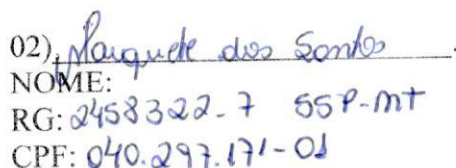 02) Marquete dos Santos.
NOME:
RG: 2458322-7 SSP-MT
CPF: 040.297.171-01